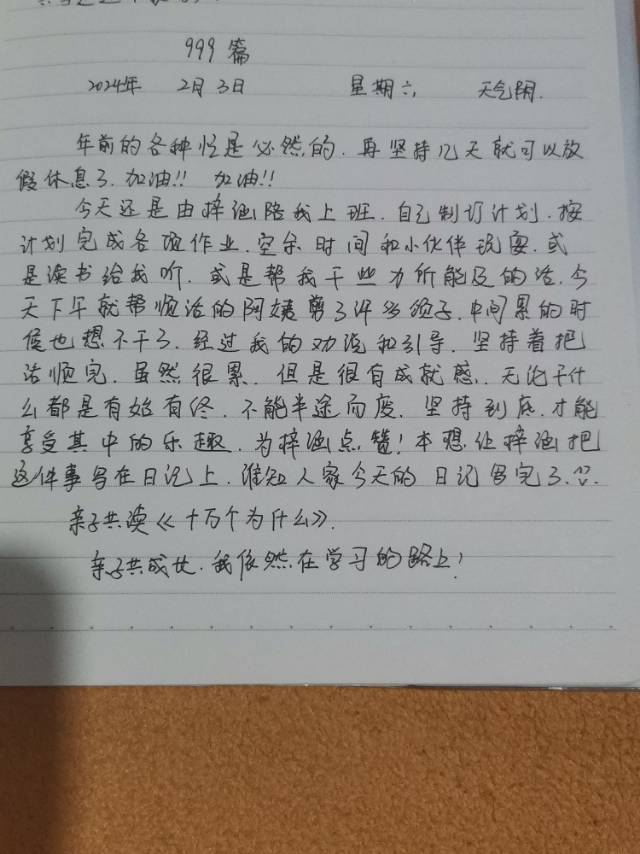 999篇
2024年 2月3日 星期六, 天气阴.
年前的各种忙是必然的.再坚持几天就可以放
假休息了.加油!! 加油!!
今天还是由梓涵陪我上班.自己制订计划.按
计划完成各项作业.空余时间和小伙伴玩耍.或
是读书给我听.或是帮我干些力所能及的活.今
天下午就帮顺活的阿姨剪了许多须子.中间累的时
候也想不干了.经过我的劝说和引导.坚持着把
活顺完.虽然很累.但是很有成就感.无论干什
么都是有始有终.不能半途而废.坚持到底.才能
享受其中的乐趣.为梓涵点赞!本想让梓涵把
这件事写在日记上.谁知人家今天的日记写完了.
亲子共读《十万个为什么》.
亲子共成长.我依然在学习的路上!